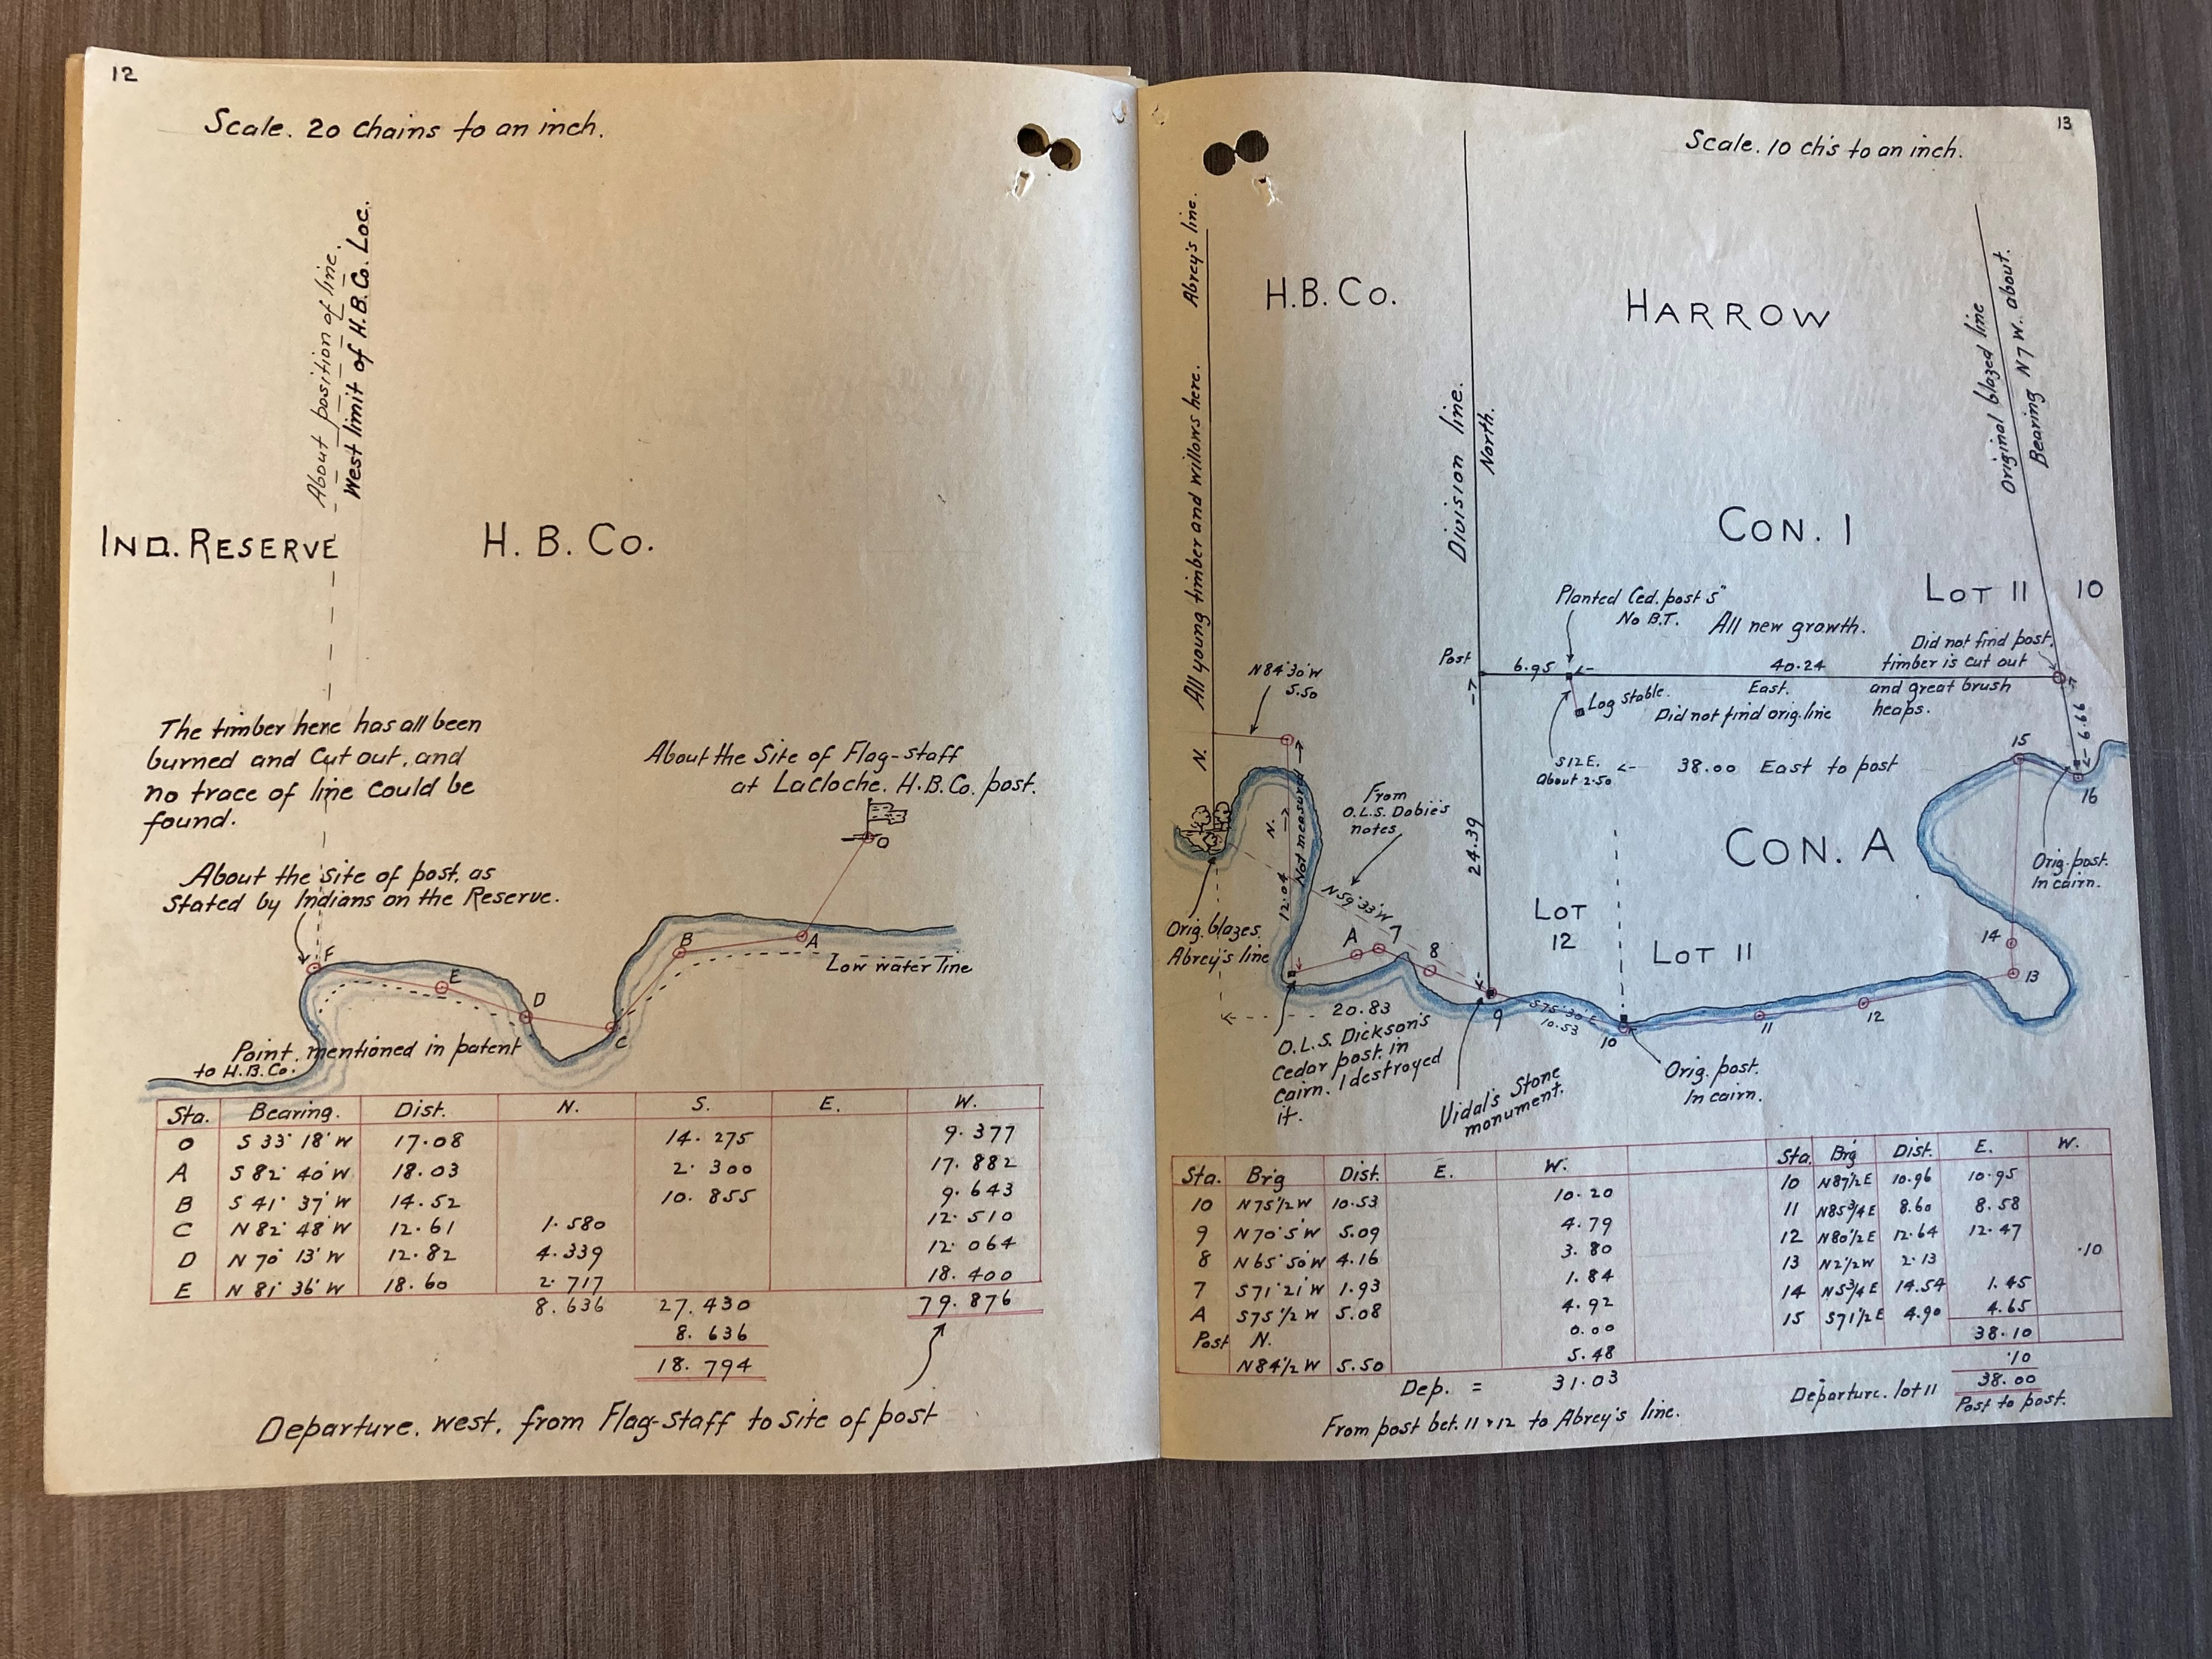 12
Scale. 20 chains to an inch.
About position of line.
West limit of H.B.Co. Loc.
IND. RESERVE
H. B. Co.
The timber here has all been
burned and cut out, and
no trace of line could be
found.
About the Site of Flag-staff
at LaCloche. H.B.Co. post.
O
About the site of post, as
stated by Indians on the Reserve.
F
E
D
C
B
A
Low water line
Point mentioned in patent
to H.B.Co.
Sta. Bearing. Dist. N. S. E. W.
O S 33° 18' W 17.08 14.275 9.377
A S 82° 40' W 18.03 2.300 17.882
B S 41° 37' W 14.52 10.855 9.643
C N 82° 48' W 12.61 1.580 12.510
D N 70° 13' W 12.82 4.339 12.064
E N 81° 36' W 18.60 2.717 18.400
8.636 27.430 79.876
8.636
18.794
Departure. west. from Flag-staff to site of post
13
Scale. 10 ch's to an inch.
Abrey's line.
All young timber and willows here.
N.
H.B. Co.
HARROW
Division line.
North.
Original blazed line
Bearing N 7 W. about.
CON. I
LOT 11
10
Planted Ced. post 5"
No B.T.
All new growth.
Did not find post.
timber is cut out
and great brush
heaps.
Post
6.95
40.24
East.
Log stable.
Did not find orig. line
S12E.
About 2.50
38.00 East to post
6.66
N84°30'W
5.50
N.
Not measured
12.04
From
O.L.S. Dobie's
notes
N59°33'W
24.39
CON. A
15
16
Orig. post.
In cairn.
14
13
12
11
10
LOT
12
LOT 11
A
7
8
9
S75°30'E
10.53
Orig. blazes.
Abrey's line
20.83
O.L.S. Dickson's
Cedar post in
cairn. I destroyed
it.
Vidal's Stone
monument.
Orig. post.
In cairn.
Sta. Br'g Dist. E. W.
10 N75½W 10.53 10.20
9 N70°5'W 5.09 4.79
8 N65°50'W 4.16 3.80
7 S71°21'W 1.93 1.84
A S75½W 5.08 4.92
Post N. 0.00
N84½W 5.50 5.48
Dep. = 31.03
From post bet. 11 & 12 to Abrey's line.
Sta. Brg Dist. E. W.
10 N87½E 10.96 10.95
11 N85¾E 8.60 8.58
12 N80½E 12.64 12.47
13 N2½W 2.13 .10
14 N5¾E 14.54 1.45
15 S71½E 4.90 4.65
38.10
.10
Departure. lot 11 38.00
Post to post.